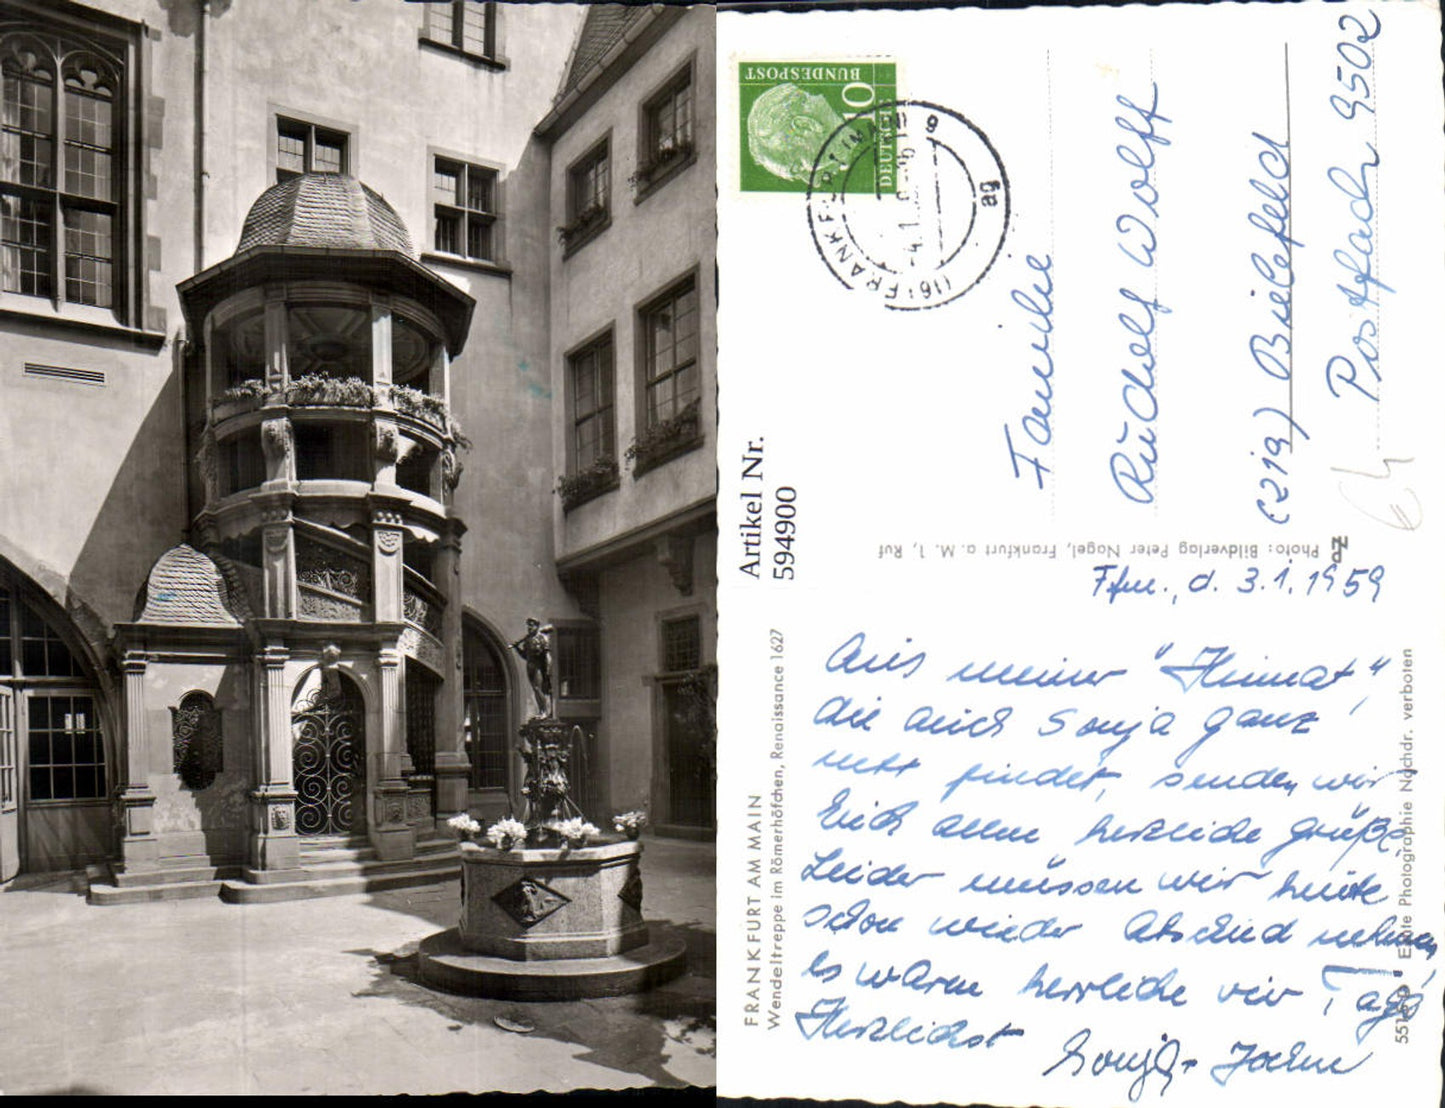 DEUTSCHE
BUNDESPOST
10
(16) FRANKFURT (MAIN) 9
ag
Artikel Nr.
594900
Familie
Rudolf Wolff
(21a) Bielefeld
Postfach 9502
Photo: Bildverlag Peter Nagel, Frankfurt a. M. 1, Ruf
Ffm., d. 3.1.1959
Aus meiner "Heimat",
die auch Sonja ganz
nett findet, senden wir
Euch allen herzliche Grüße.
Leider müssen wir heute
schon wieder Abschied nehmen,
es waren herrliche vier Tage,
Herzlichst Sonja + Jochen
FRANKFURT AM MAIN
Wendeltreppe im Römerhöfchen, Renaissance 1627
Echte Photographie Nachdr. verboten